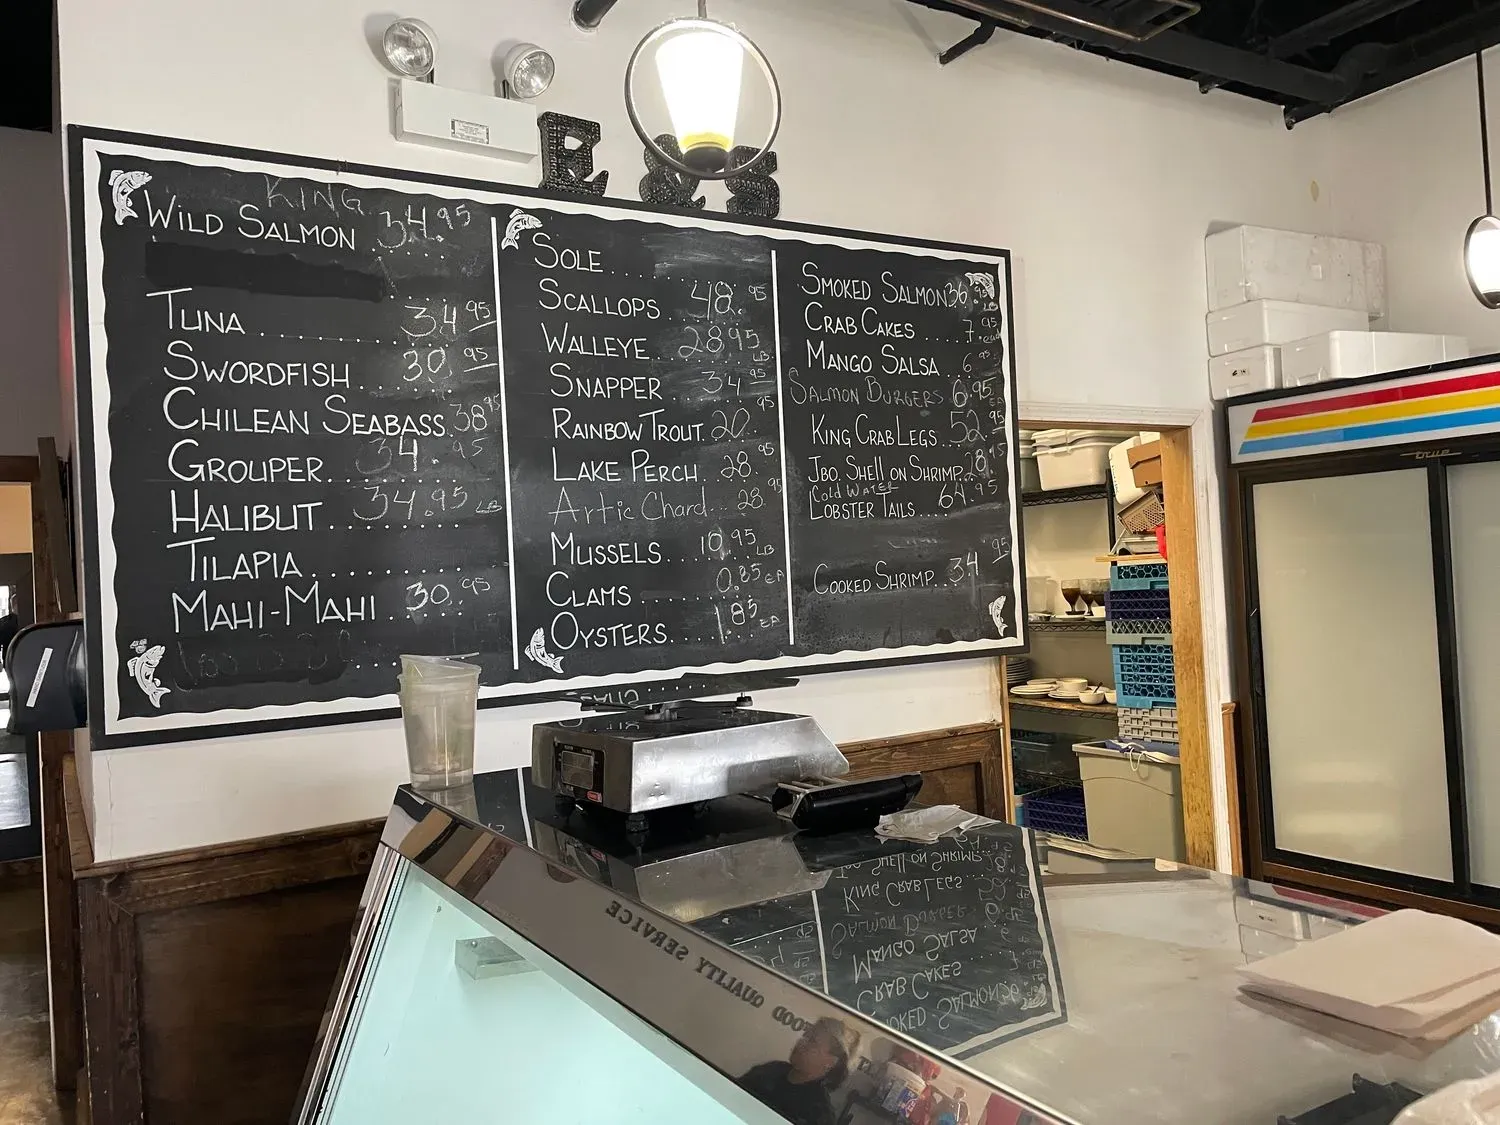 E & S
KING
WILD SALMON 34.95
TUNA ........ 34.95
SWORDFISH .... 30.95
CHILEAN SEABASS. 38.95
GROUPER........ 34.95
HALIBUT ........ 34.95 LB
TILAPIA..........
MAHI-MAHI ...... 30.95
SOLE .....
SCALLOPS .... 48.95
WALLEYE...... 28.95 LB
SNAPPER ..... 34.95
RAINBOW TROUT. 20.95
LAKE PERCH ... 28.95
Artic Chard... 28.95
MUSSELS ... 10.95 LB
CLAMS ........ 0.85 EA
OYSTERS...... 1.85 EA
SMOKED SALMON 36.95 LB
CRAB CAKES .... 7.95 ea
MANGO SALSA .. 6.95
SALMON BURGERS 6.95 EA
KING CRAB LEGS... 52.95
JBO. SHELL ON SHRIMP.. 28.95
COLD WATER
LOBSTER TAILS.... 64.95
COOKED SHRIMP... 34.95
true
FOOD QUALITY SERVICE